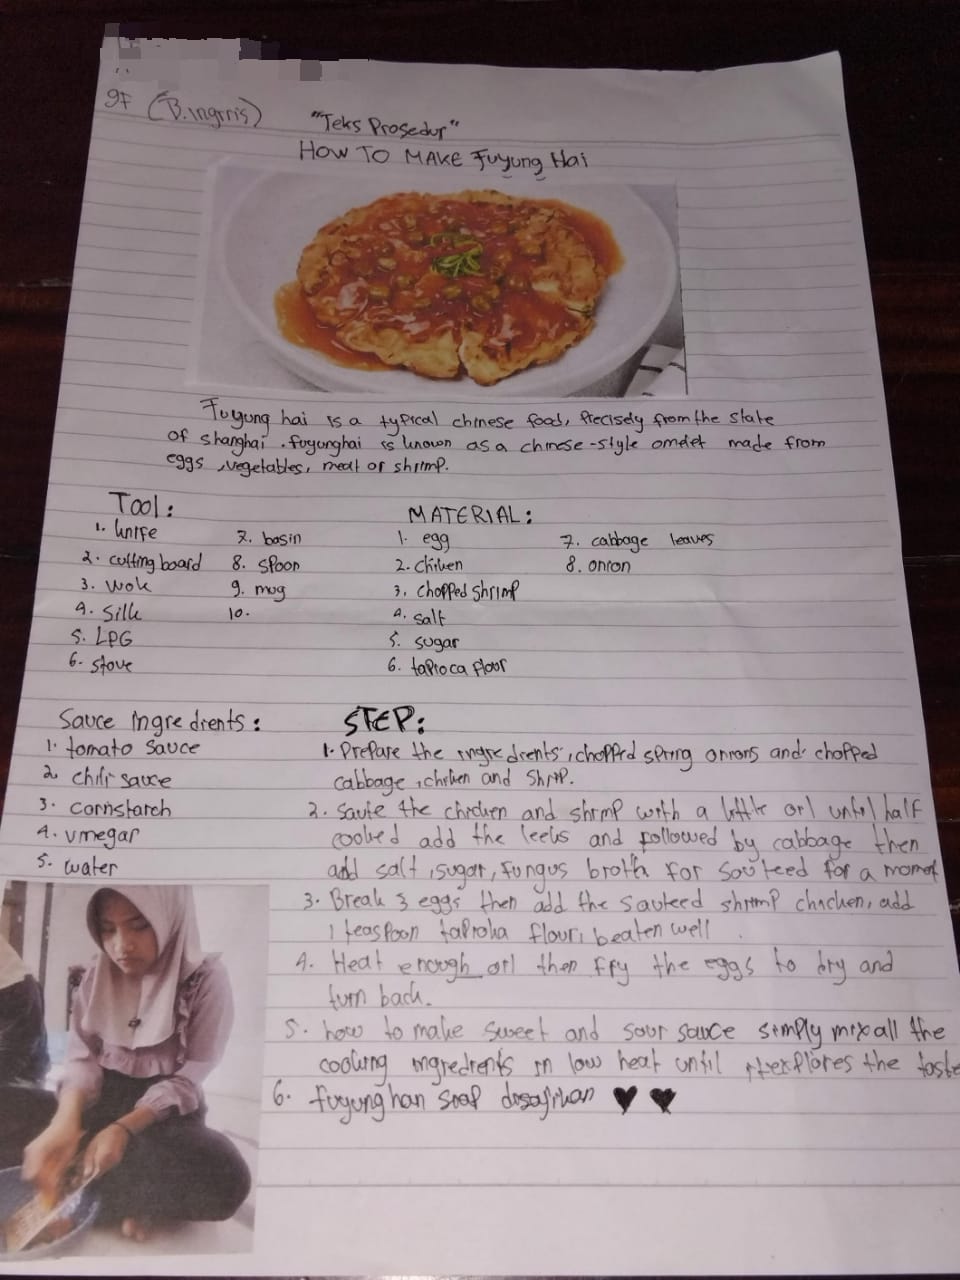 9F (B.Inggris)
"Teks Prosedur"
HOW TO MAKE Fuyung Hai
Fuyung hai is a typical chinese food, Precisely from the state
of shanghai . fuyunghai is known as a chinese-style omelet made from
eggs ,vegetables, meat or shrimp.
Tool:
1. knife
2. cutting board
3. wok
4. Silk
5. LPG
6. stove
7. basin
8. spoon
9. mug
10.
MATERIAL:
1. egg
2. chiken
3. chopped shrimp
4. salt
5. sugar
6. tapioca flour
7. cabbage leaves
8. onion
Sauce Ingredients:
1. tomato sauce
2. chili sauce
3. cornstarch
4. vinegar
5. water
STEP:
1. Prepare the ingredients, chopped spring onions and chopped
cabbage ,chicken and
2. saute the chicken and shrimp with a little oil until half
cooked add the leeks and followed by cabbage then
add salt ,sugar, fungus broth for souteed for a moment
3. Break 3 eggs then add the sauteed shrimp chicken, add
1 teaspoon flour, beaten well
4. Heat enough oil then fry the eggs to dry and
turn back.
5. how to make sweet and sour sauce simply mix all the
cooking ingredients in low heat until explores the taste
6. disajikan